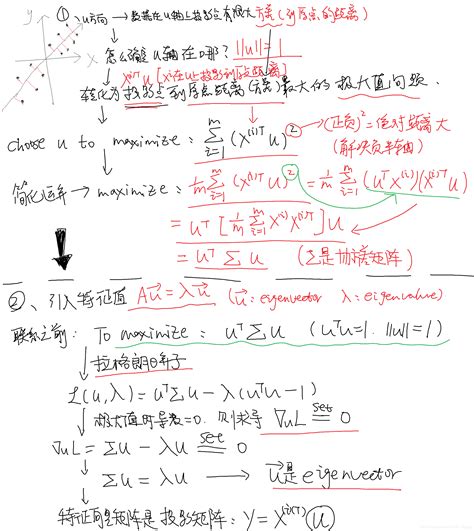 ① u方向 → 数据在u轴上投影点有很大方差(到原点的距离)
怎么确定u轴在哪? ||u||=1
X⁽ⁱ⁾ᵀu [xⁱ在u上投影到原点距离]
x
转化为投影点到原点距离(方差)最大的极大值问题.
choose u to maximize: Σᵢ₌₁ᵐ (X⁽ⁱ⁾ᵀu)² → (正负)²=绝对距离大
(解决负半轴)
简化运算→ maximize: 1/m Σᵢ₌₁ᵐ (X⁽ⁱ⁾ᵀu)² = 1/m Σᵢ₌₁ᵐ (uᵀX⁽ⁱ⁾)(X⁽ⁱ⁾ᵀu)
= uᵀ[1/m Σᵢ₌₁ᵐ X⁽ⁱ⁾X⁽ⁱ⁾ᵀ]u
= uᵀΣu (Σ是协方差矩阵)
②、引入特征值 Au⃗=λu⃗ (u⃗: eigenvector λ: eigenvalue)
联系之前: To maximize: uᵀΣu (uᵀu=1. ||u||=1)
拉格朗日算子
ℒ(u,λ)=uᵀΣu-λ(uᵀu-1)
极大值时导数=0. 则求导 ∇uL set= 0
∇uL = Σu - λu set= 0
Σu = λu → u⃗是eigenvector
特征向量矩阵是投影矩阵: y = X⁽ⁱ⁾⁽ᵀ⁾u